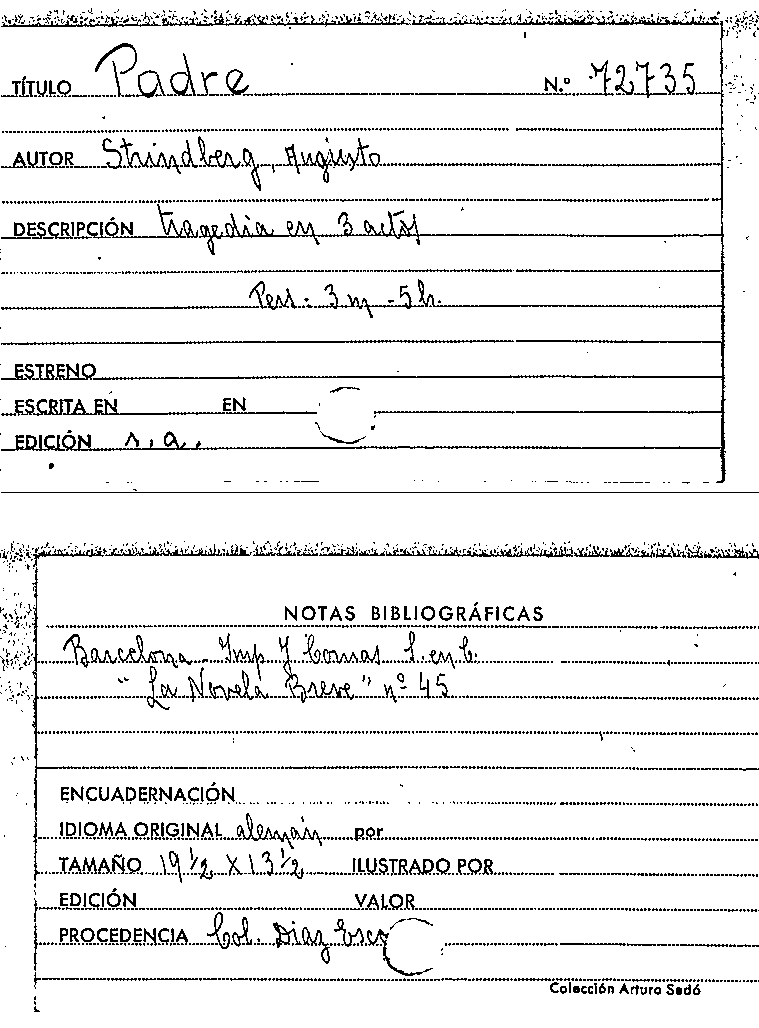 TÍTULO Padre N.º 72735
AUTOR Strindberg, Augusto
DESCRIPCIÓN tragedia en 3 actos
Pers = 3 m - 5 h.
ESTRENO
ESCRITA EN EN
EDICIÓN s.a.
NOTAS BIBLIOGRÁFICAS
Barcelona - Imp J Comas S. en C.
"La Novela Breve" nº 45
ENCUADERNACIÓN
IDIOMA ORIGINAL alemán por
TAMAÑO 19 ½ X 13 ½ ILUSTRADO POR
EDICIÓN VALOR
PROCEDENCIA Col. Diaz Esco
Colección Arturo Sedó